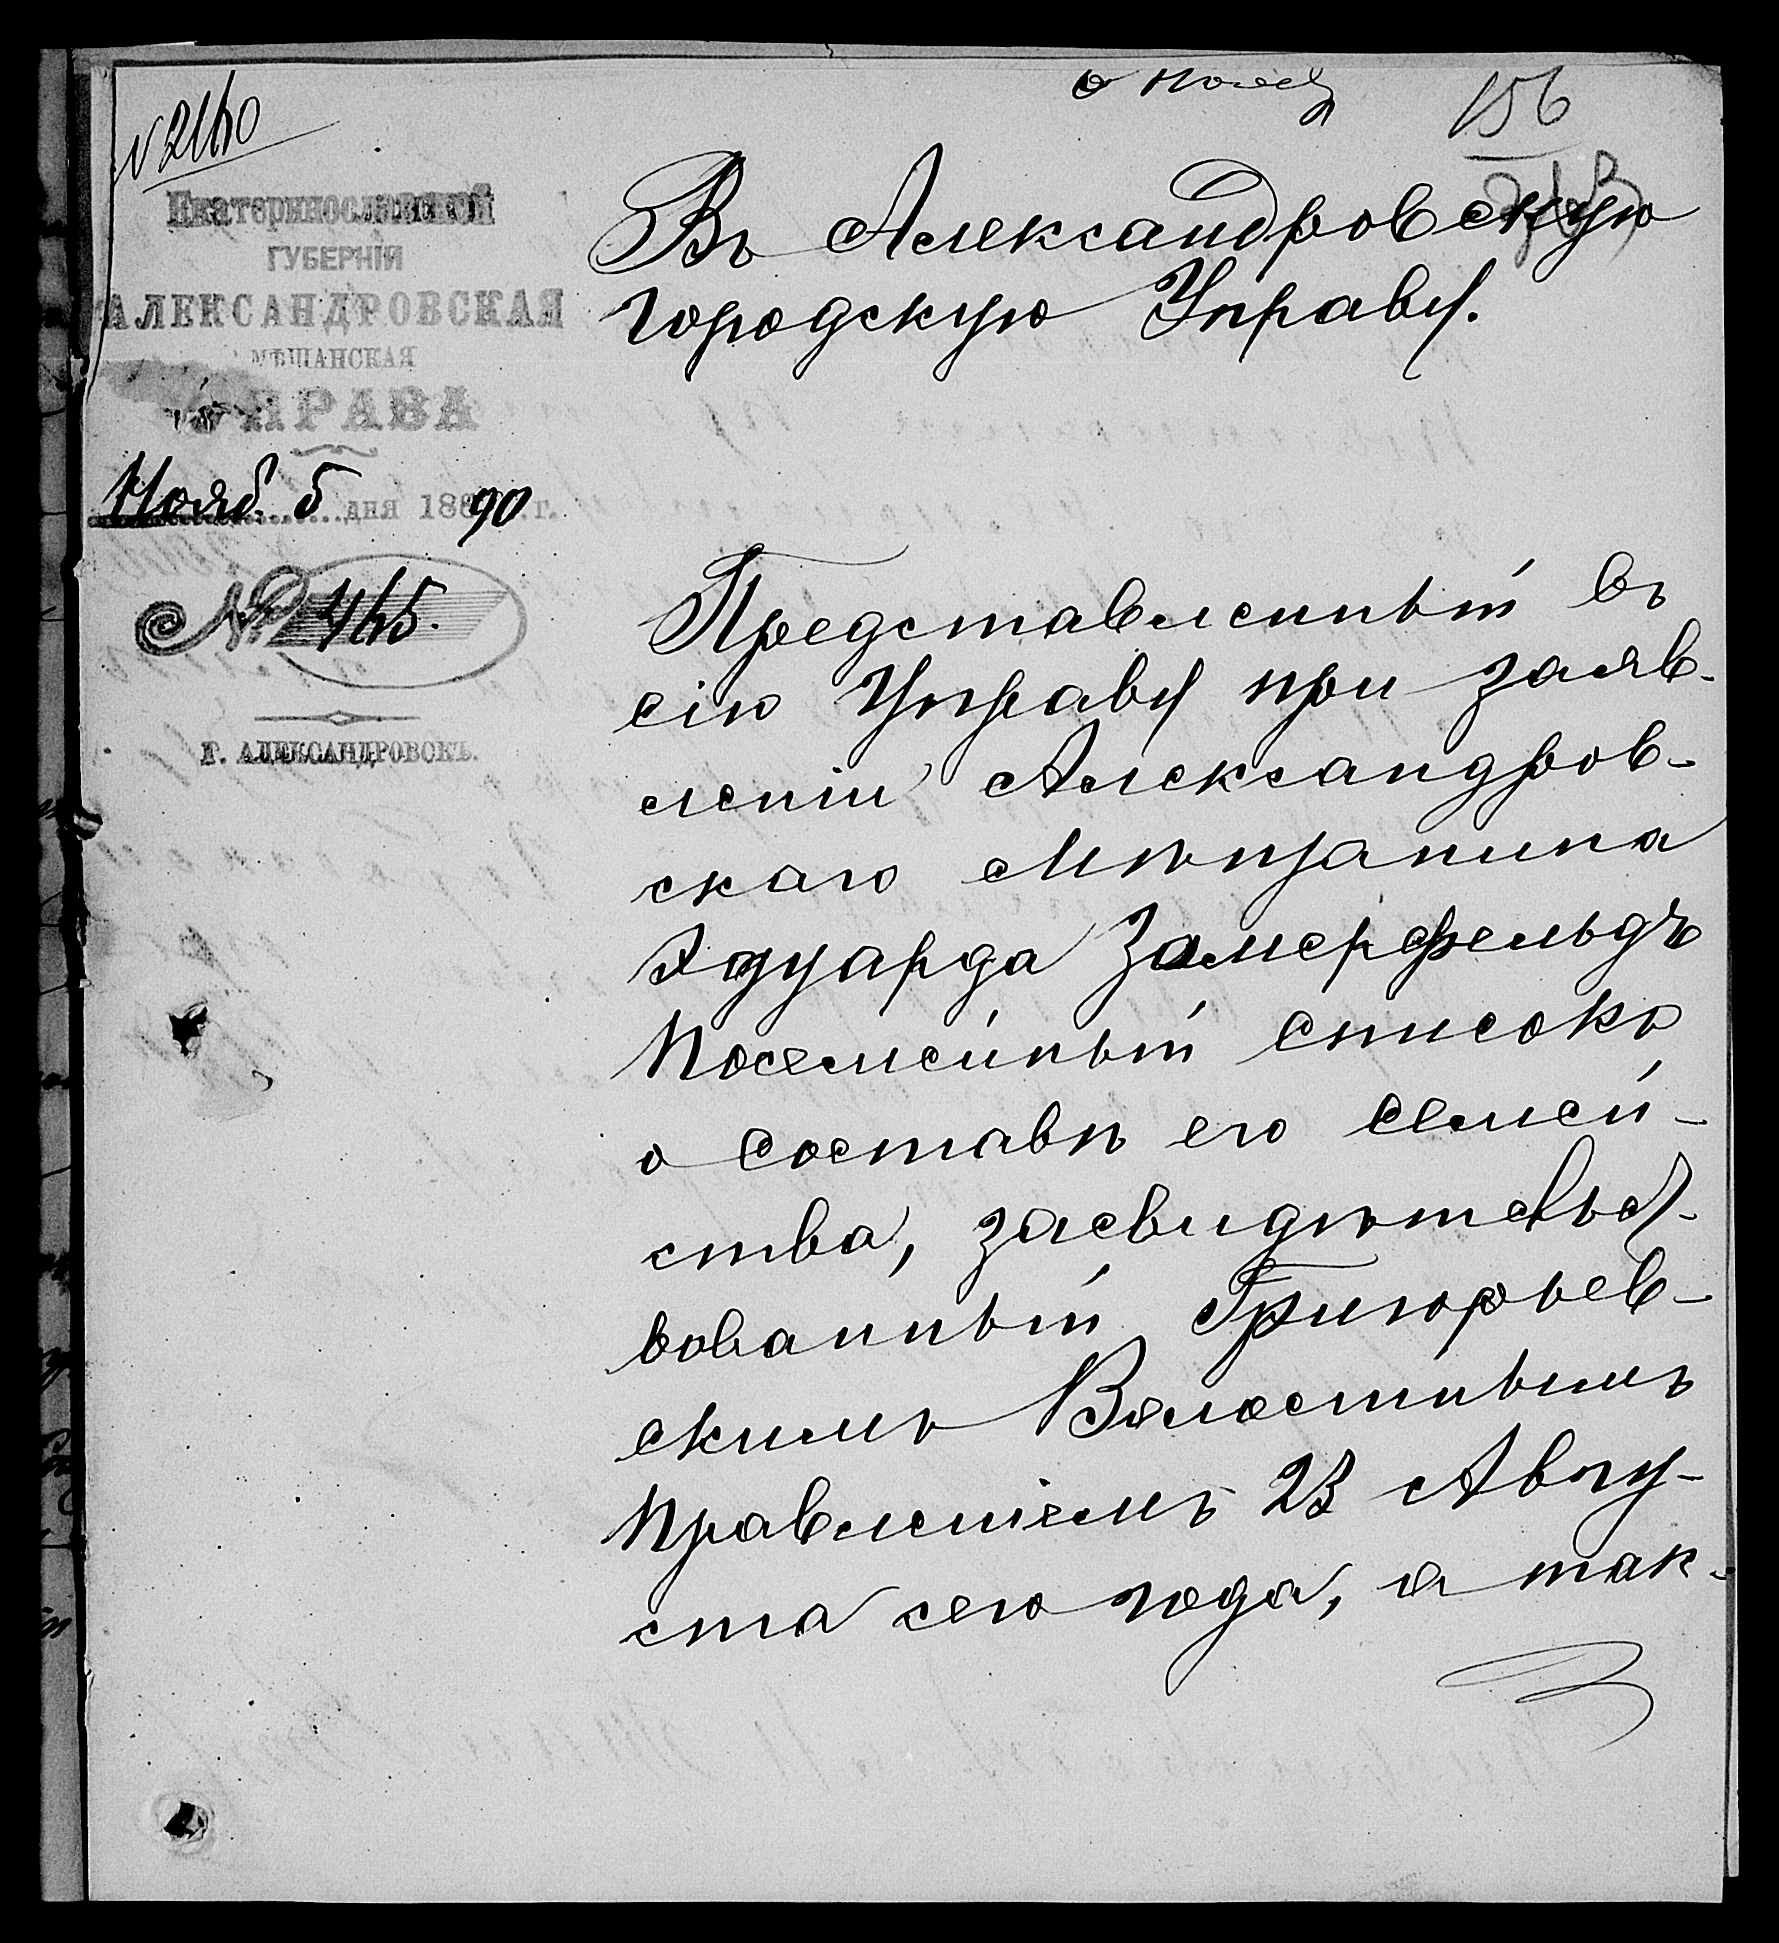 156
Екатеринославской
ГУБЕРНІИ
АЛЕКСАНДРОВСКАЯ
МѢЩАНСКАЯ
УПРАВА
Нояб. 5 дня 1890 г.
№ 465.
Г. АЛЕКСАНДРОВСКЪ.
Въ Александровскую
Городскую Управу.
Представленный въ
сію Управу при заяв-
леніи Александров-
скаго Мѣщанина
Эдуарда Замерфельдъ
Посемейный списокъ
о составѣ его семей-
ства, засвидѣтельст-
вованный Григорьев-
скимъ Волостнымъ
Правленіемъ 23 Авгу-
ста сего года, а так-